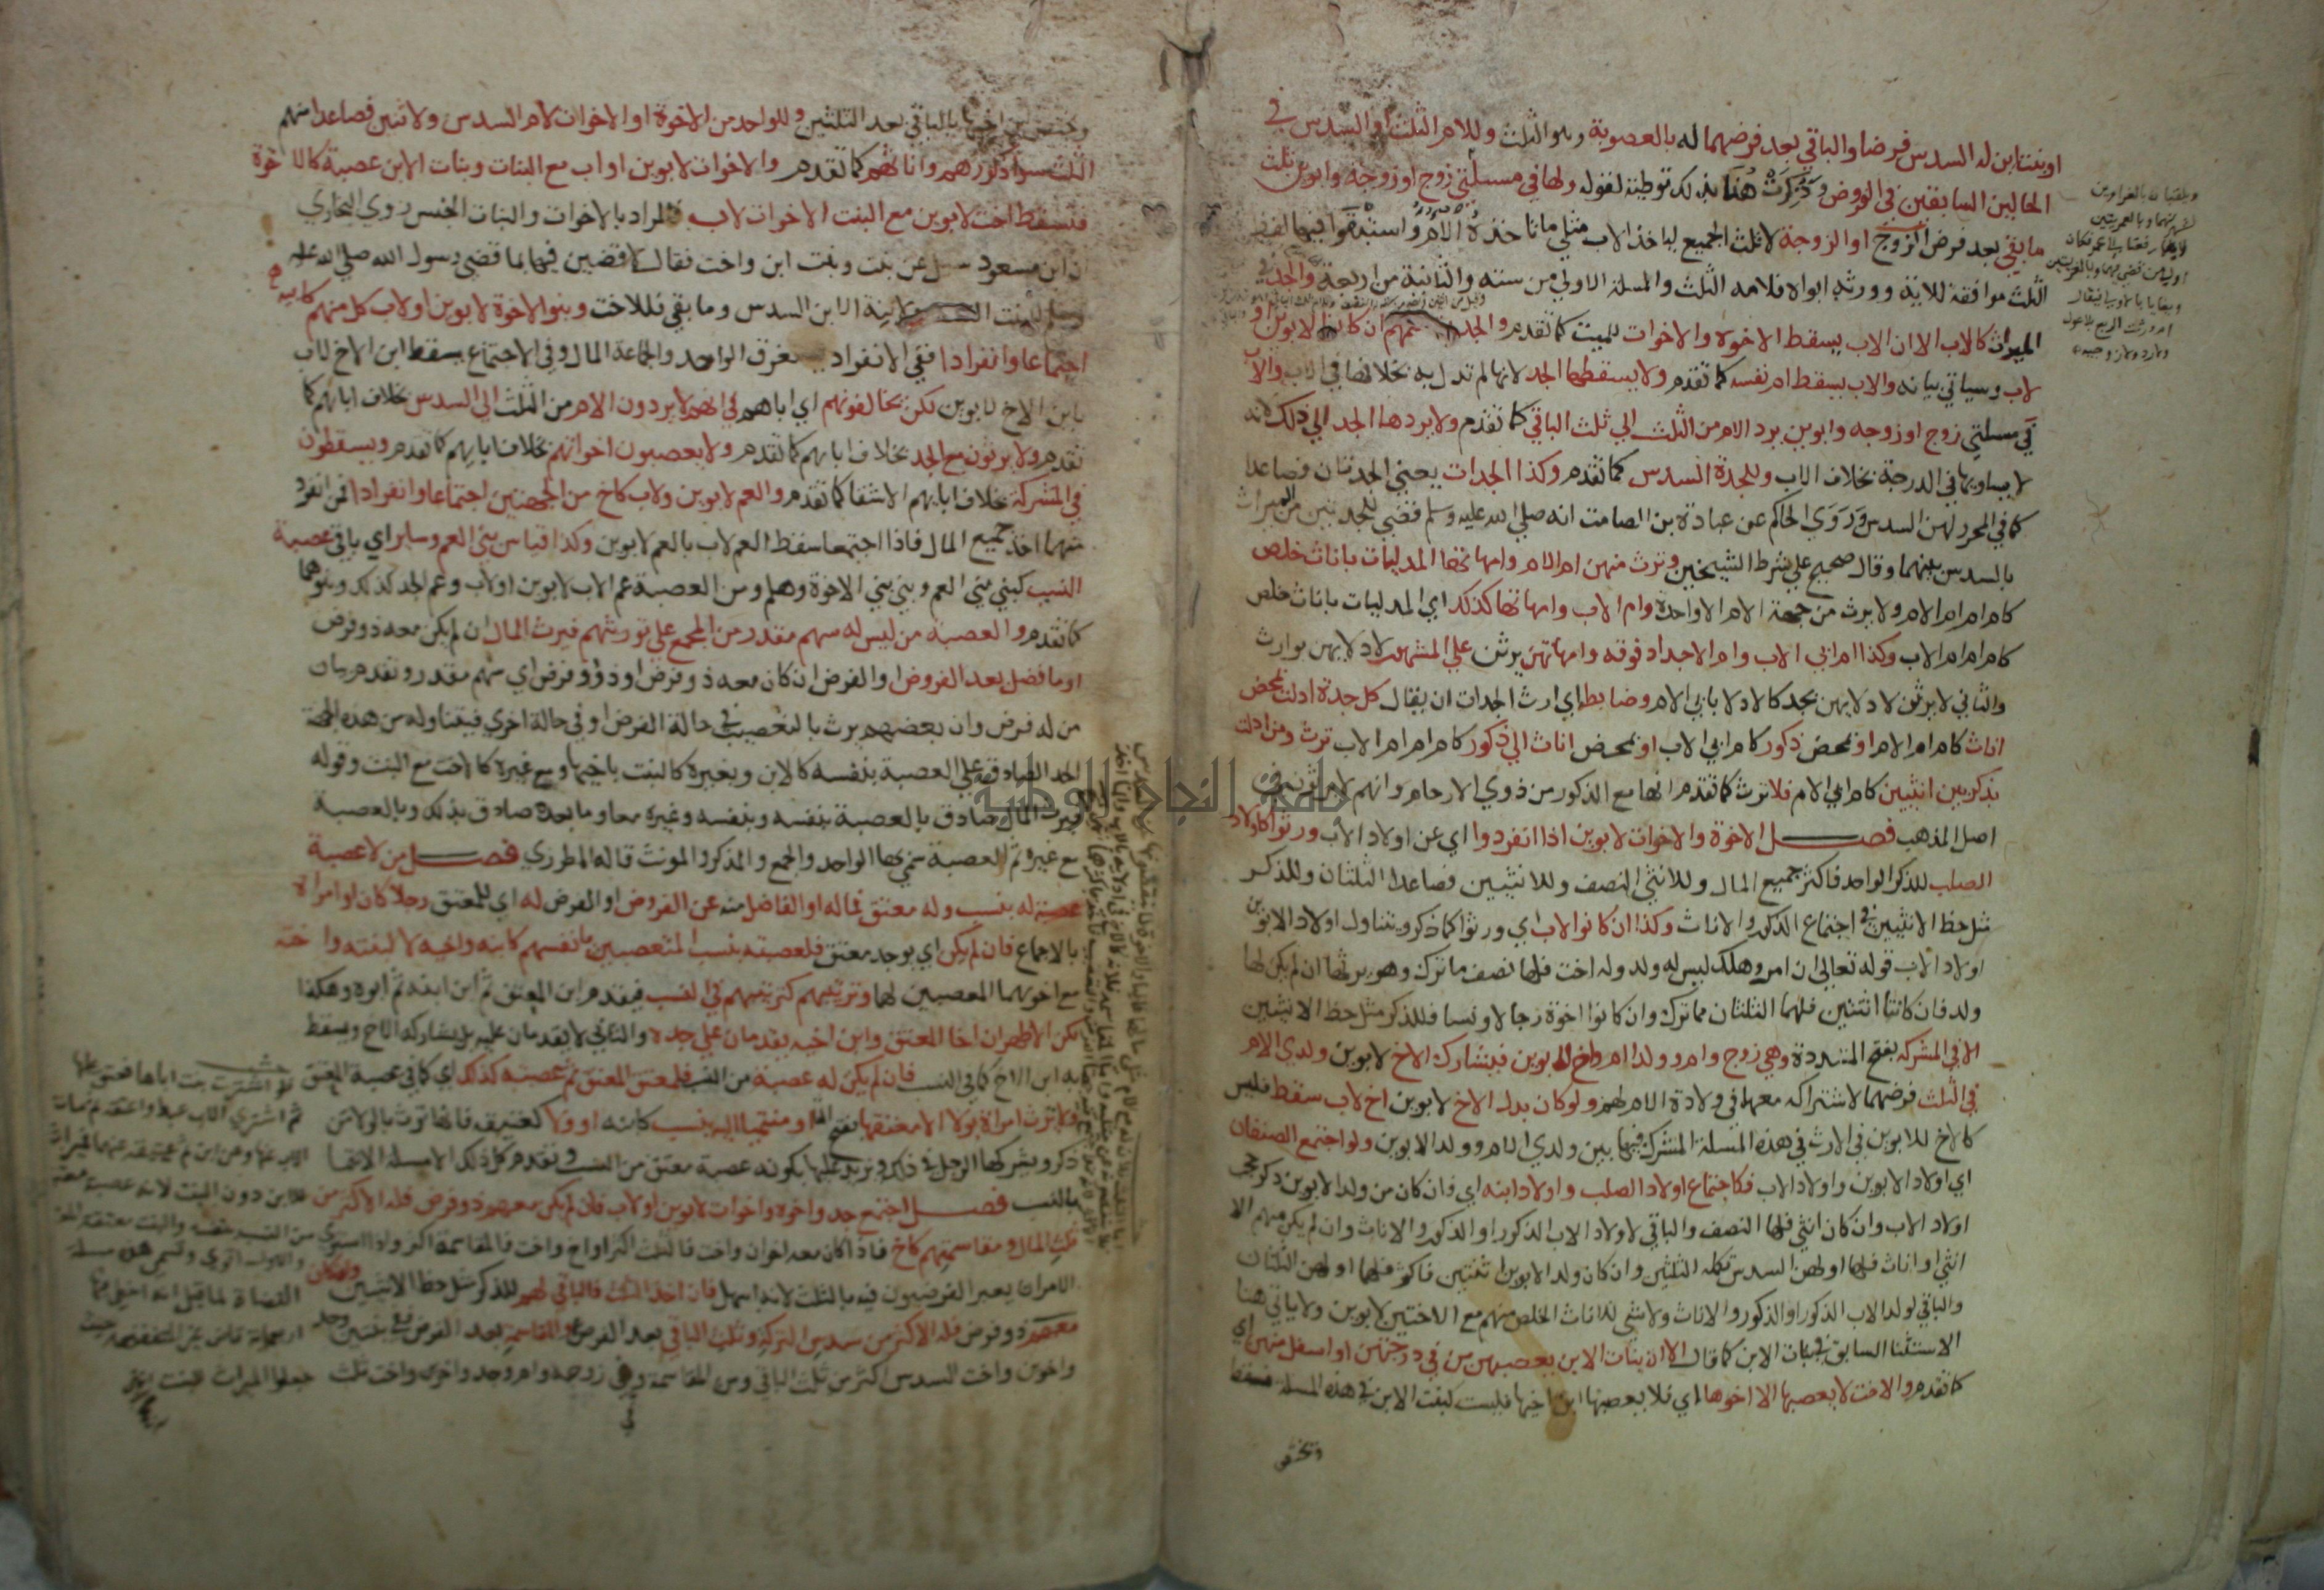 او بنت ابن له السدس فرضا والباقي بعد فرضهما له بالعصوبة وهو الثلث وللام الثلث او السدس في
الحالين السابقين في الفروض وذكرت هنا بذلك توطية لقوله ولها في مسئلتي زوج او زوجة وابوين ثلث
ما بقي بعد فرض الزوج او الزوجة لا ثلث الجميع لياخذ الاب مثلي ما تاخذه الام واستبقوا فيهما لفظ
الثلث موافقة للاية وورثه ابواه فلامه الثلث والمسلة الاولي من ستة والثانية من اربعة والجد في
الميراث كالاب الا ان الاب يسقط الاخوة والاخوات للميت كما تقدم والجد يقاسمهم ان كانوا لابوين او
لاب وسياتي بيانه والاب يسقط ام نفسه كما تقدم ولا يسقطها الجد لانها لم تدل به بخلافها في الاب والاب
في مسلتي زوج او زوجة وابوين يرد الام من الثلث الي ثلث الباقي كما تقدم ولا يردها الجد الي ذلك لانه
لا يساويها في الدرجة بخلاف الاب وللجدة السدس كما تقدم وكذا الجدات يعني الجدتان فصاعدا
كما في المحرر لهن السدس وروي الحاكم عن عبادة بن الصامت انه صلي الله عليه وسلم قضي للجدتين من الميراث
بالسدس بينهما وقال صحيح علي شرط الشيخين وترث منهن ام الام وامهاتها المدليات باناث خلص
كام ام ام الام ولا يرث من جهة الام الا واحدة وام الاب وامهاتها كذلك اي المدليات باناث خلص
كام ام ام الاب وكذا ام ابي الاب وام الاجداد فوقه وامهاتهن يرثن علي المشهور لادلايهن بوارث
والثاني لا يرثن لادلايهن بجد كالادلا بابي الام وضابط اي ارث الجدات ان يقال كل جدة ادلت بمحض
اناث كام ام الام او بمحض ذكور كام ابي الاب او بمحض اناث الي ذكور كام ام ام الاب ترث ومن ادلت
بذكر بين انثيين كام ابي الام فلا ترث كما تقدم انها مع الذكور من ذوي الارحام وانهم لا يرثون في
اصل المذهب فصل الاخوة والاخوات لابوين اذا انفردوا اي عن اولاد الاب ورثوا كاولاد
الصلب للذكر الواحد فاكثر جميع المال وللانثي النصف وللانثيين فصاعدا الثلثان وللذكر
مثل حظ الانثيين في اجتماع الذكور والاناث وكذا ان كانوا لاب اي ورثوا كما ذكر ويتناول اولاد الابوين
اولاد الاب قوله تعالي ان امرو هلك ليس له ولد وله اخت فلها نصف ما ترك وهو يرثها ان لم يكن لها
ولد فان كانتا اثنتين فلهما الثلثان مما ترك وان كانوا اخوة رجالا ونسا فللذكر مثل حظ الانثيين
الا في المشركه بفتح المشددة وهي زوج وام وولدا ام واخ لابوين فيشارك الاخ لابوين ولدي الام
في الثلث فرضهما لاشتراكه معهما في ولادة الام لهم ولو كان بدل الاخ لابوين اخ لاب سقط فليس
كالاخ للابوين في الارث في هذه المسلة المشرك فيها بين ولدي الام وولد الابوين ولو اجتمع الصنفان
اي اولاد الابوين واولاد الاب فكاجتماع اولاد الصلب واولاد ابنه اي فان كان من ولد الابوين ذكر حجب
اولاد الاب وان كان انثي فلها النصف والباقي لاولاد الاب الذكور او الذكور والاناث وان لم يكن منهم الا
انثي او اناث فلها او لهن السدس تكملة الثلثين وان كان ولد الابوين اثنتين فاكثر فلهما او لهن الثلثان
والباقي لولد الاب الذكور او الذكور والاناث ولا شي للاناث الخلص منهم مع الاختين لابوين ولا ياتي هنا
الاستثنا السابق في بنات الابن كما قال الا ان بنات الابن يعصبهن من في درجتهن او اسفل منهن اي
كما تقدم والاخت لا يعصبها الا اخوها اي فلا يعصبها ابن اخيها فليست كبنت الابن في هذه المسلة فتسقط
وتختص
ابن اخيها بالباقي بعد الثلثين وللواحد من الاخوة او الاخوات لام السدس ولاثنين فصاعدا منهم
الثلث سوا ذكورهم واناثهم كما تقدم والاخوات لابوين او اب مع البنات وبنات الابن عصبة كالاخوة
فتسقط اخت لابوين مع البنت الاخوات لاب فالمراد بالاخوات والبنات الجنس روي البخاري
ان ابن مسعود سئل عن بنت وبنت ابن واخت فقال لاقضين فيها بما قضي رسول الله صلي الله عليه
وسلم للبنت النصف ولابنة الابن السدس وما بقي فللاخت وبنو الاخوة لابوين او لاب كل منهم كابيه
اجتماعا وانفرادا ففي الانفراد يستغرق الواحد والجماعة المال وفي الاجتماع يسقط ابن الاخ لاب
بابن الاخ لابوين لكن يخالفونهم اي اباهم في انهم لا يردون الام من الثلث الي السدس بخلاف ابائهم كما
تقدم ولا يرثون مع الجد بخلاف ابايهم كما تقدم ولا يعصبون اخواتهم بخلاف ابايهم كما تقدم ويسقطون
في المشركة بخلاف ابايهم الاشقا كما تقدم والعم لابوين ولاب كاخ من الجهتين اجتماعا وانفرادا فمن انفرد
منهما اخذ جميع المال فاذا اجتمعا سقط العم لاب بالعم لابوين وكذا قياس بني العم وساير اي باقي عصبة
النسب كبني بني العم وبني بني الاخوة وهلم ومن العصبة عم الاب لابوين او لاب وعم الجد كذلك وبنوهما
كما تقدم والعصبة من ليس له سهم مقدر من المجمع علي توريثهم فيرث المال ان لم يكن معه ذو فرض
او ما فضل بعد الفروض او الفرض ان كان معه ذو فرض او ذوو فرض اي سهم مقدر وتقدم بيان
من له فرض وان بعضهم يرث بالتعصيب في حالة الفرض او في حالة اخري فيتناوله من هذه الجهة
الحد الصادق علي العصبة بنفسه كالابن وبغيره كالبنت باخيها ومع غيره كالاخت مع البنت وقوله
فيرث المال صادق بالعصبة بنفسه وبنفسه وغيره معا وما بعده صادق بذلك وبالعصبة
مع غيره ثم العصبة سمي بها الواحد والجمع والمذكر والمونث قاله المطرزي فصل من لا عصبة
عصبة له بنسب وله معتق فماله او الفاضل منه عن الفروض او الفرض له اي للمعتق رجلا كان او امراة
بالاجماع فان لم يكن اي يوجد معتق فلعصبته بنسب المتعصبين بانفسهم كابنه واخيه لا لبنته واخته
مع اخويهما المعصبين لهما وترتيبهم كترتيبهم في النسب فيقدم ابن المعتق ثم ابن ابنه ثم ابوه وهكذا
لكن الاظهر ان اخا المعتق وابن اخيه يقدمان علي جده والثاني لا يقدمان عليه بل يشاركه الاخ ويسقط
به ابن الاخ كما في النسب فان لم يكن له عصبة من النسب فلمعتق المعتق ثم عصبته كذلك اي كما في عصبة المعتق
ولا ترث امراة بولا الا معتقها بفتح التا او منتميا اليه بنسب كابنه او ولا كعتيقه فانها ترث بالولا من
ذكر ويشركها الرجل في ذكر ويزيد عليها بكونه عصبة معتق من النسب وتقدم كل ذلك الا مسلة الانتما
بالنسب فصل اجتمع جد واخوة واخوات لابوين او لاب فان لم يكن معهم ذو فرض فله الاكثر من
ثلث المال ومقاسمتهم كاخ فاذا كان معه اخوان واخت فالثلث اكثر او اخ واخت فالمقاسمة اكثر واذا استوي
الامران يعبر الفرضيون فيه بالثلث لانه اسهل فان اخذ الثلث فالباقي لهم للذكر مثل حظ الانثيين وان كان
معهم ذو فرض فله الاكثر من سدس التركة وثلث الباقي بعد الفرض والمقاسمة بعد الفرض ففي بنتين وجد
واخوين واخت السدس اكثر من ثلث الباقي ومن المقاسمة وفي زوجة وام وجد واخوين واخت ثلث
جامعة النجاح الوطنية